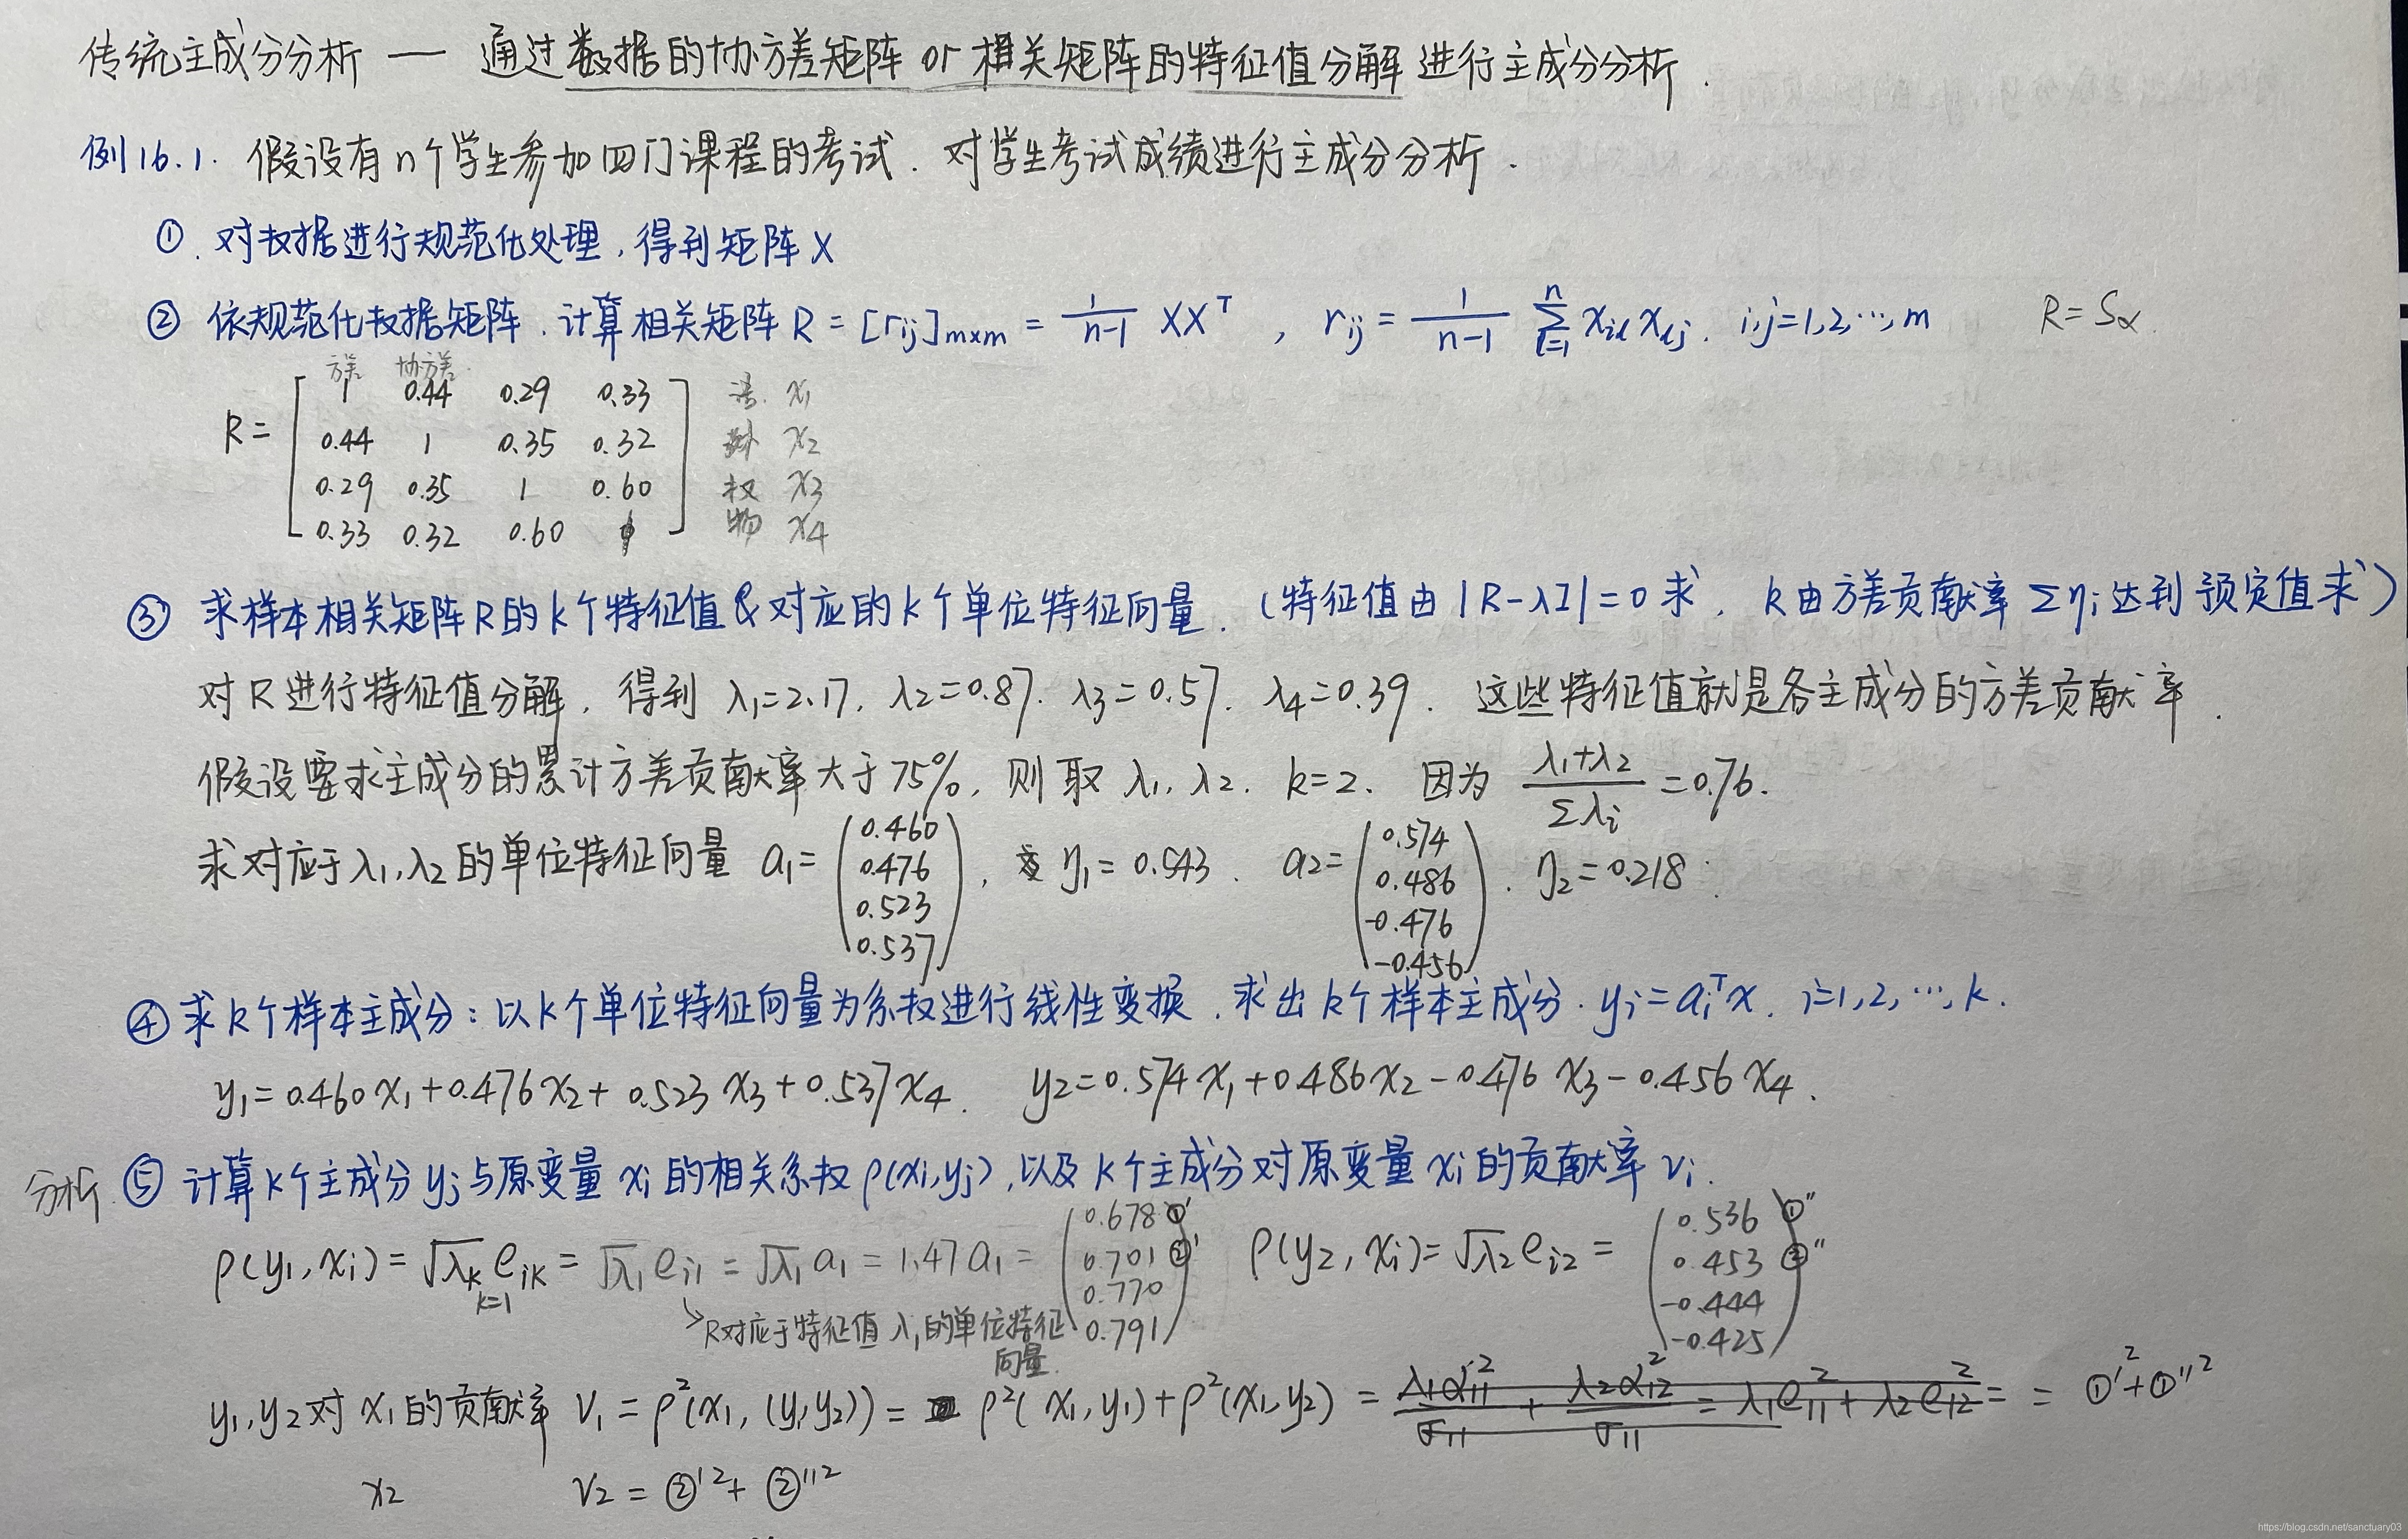 传统主成分分析 — 通过数据的协方差矩阵 or 相关矩阵的特征值分解进行主成分分析.
例16.1. 假设有n个学生参加四门课程的考试. 对学生考试成绩进行主成分分析.
①. 对数据进行规范化处理, 得到矩阵X
② 依规范化数据矩阵. 计算相关矩阵 R = [rij]m×m = 1/(n-1) XX^T , rij = 1/(n-1) Σ(l=1→n) xil xlj. i,j=1,2,…,m R=Sx.
方差 协方差.
R = [ 1 0.44 0.29 0.33 ] 语. x1
0.44 1 0.35 0.32 外 x2
0.29 0.35 1 0.60 数 x3
0.33 0.32 0.60 1 物 x4
③ 求样本相关矩阵R的k个特征值&对应的k个单位特征向量. (特征值由 |R-λI|=0 求, k由方差贡献率 Σηi 达到预定值求)
对R进行特征值分解, 得到 λ1=2.17, λ2=0.87. λ3=0.57. λ4=0.39. 这些特征值就是各主成分的方差贡献率.
假设要求主成分的累计方差贡献率大于75%, 则取 λ1, λ2. k=2. 因为 (λ1+λ2)/Σλi =0.76.
求对应于λ1,λ2的单位特征向量 a1= (0.460 0.476 0.523 0.537), η1=0.543. a2= (0.574 0.486 -0.476 -0.456). η2=0.218.
④ 求k个样本主成分: 以k个单位特征向量为系数进行线性变换, 求出k个样本主成分. yi=ai^T x. i=1,2,…,k.
y1=0.460x1+0.476x2+0.523x3+0.537x4. y2=0.574x1+0.486x2-0.476x3-0.456x4.
分析. ⑤ 计算k个主成分yj与原变量xi的相关系数ρ(xi,yj), 以及k个主成分对原变量xi的贡献率νi.
ρ(y1,xi)=√λk eik = √λ1 ei1 = √λ1 a1 = 1.47a1 = (0.678 ①' 0.701 ②' 0.770 0.791) ρ(y2,xi)=√λ2 ei2 = (0.536 ①'' 0.453 ②'' -0.444 -0.425)
k=1
↘R对应于特征值λ1的单位特征
向量.
y1,y2对x1的贡献率 ν1=ρ²(x1,(y1y2))= ρ²(x1,y1)+ρ²(x1,y2) = λ1α11²/σ11 + λ2α12²/σ11 = λ1e11²+λ2e12² = = ①'²+①''²
x2 ν2=②'²+②''²
https://blog.csdn.net/sanctuary03